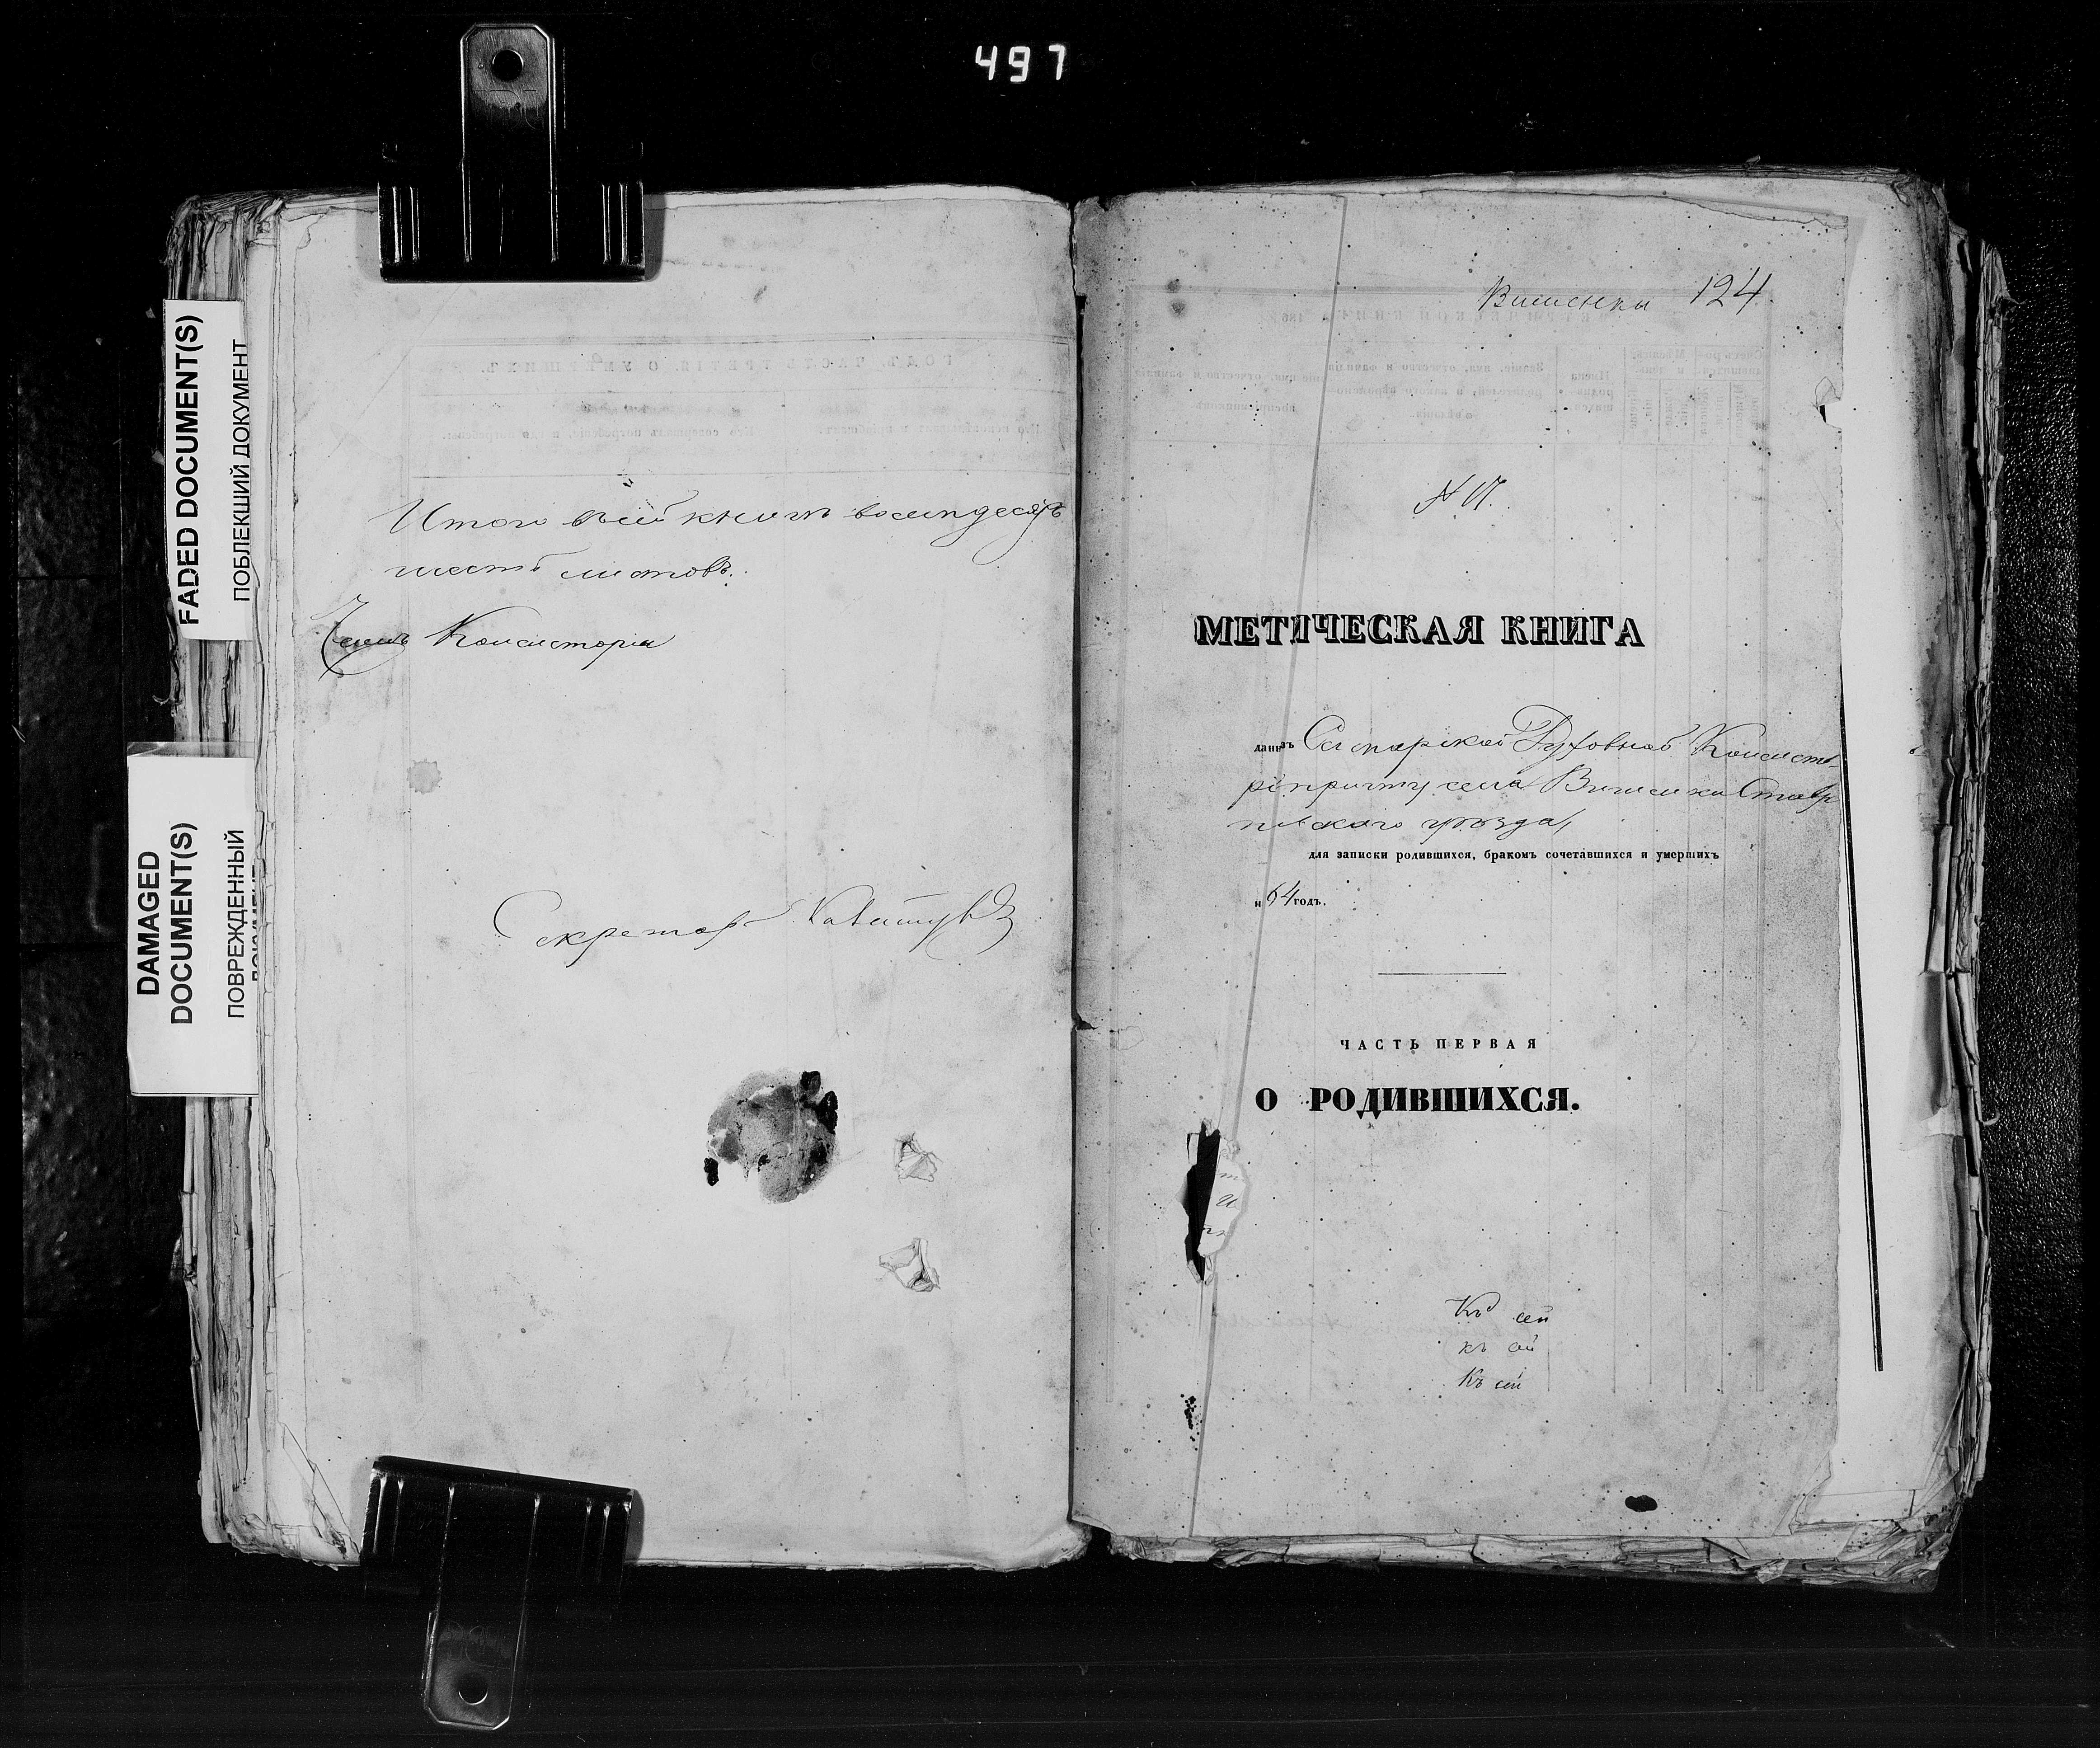 497
FADED DOCUMENT(S)
ПОБЛЕКШИЙ ДОКУМЕНТ
DAMAGED
DOCUMENT(S)
ПОВРЕЖДЕННЫЙ
Итого въ сей книгѣ восемьдесятъ
шесть листовъ.
Членъ Консисторіи
Секретарь
Вишенки 124.
N 17.
МЕТИЧЕСКАЯ КНИГА
данъ Самарской Духовной Консисто-
рі причту села Вишенки Ставр
польского уѣзда,
для записки родившихся, бракомъ сочетавшихся и умершихъ
н 64 годъ.
ЧАСТЬ ПЕРВАЯ
О РОДИВШИХСЯ.
Къ сей
къ сей
Къ сей